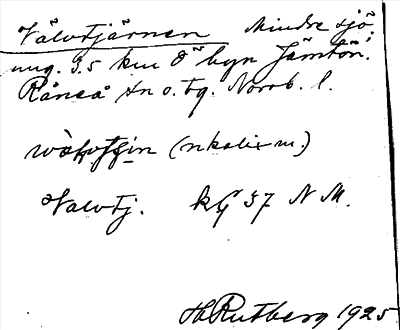 Valvtjärnen Mindre sjö
ung. 3.5 km Ö byn Jämtön.
Råneå sn o. tg. Norrb. l.
(nkalix m.)
Valvtj. kG 37 NM.
H Rutberg 1925